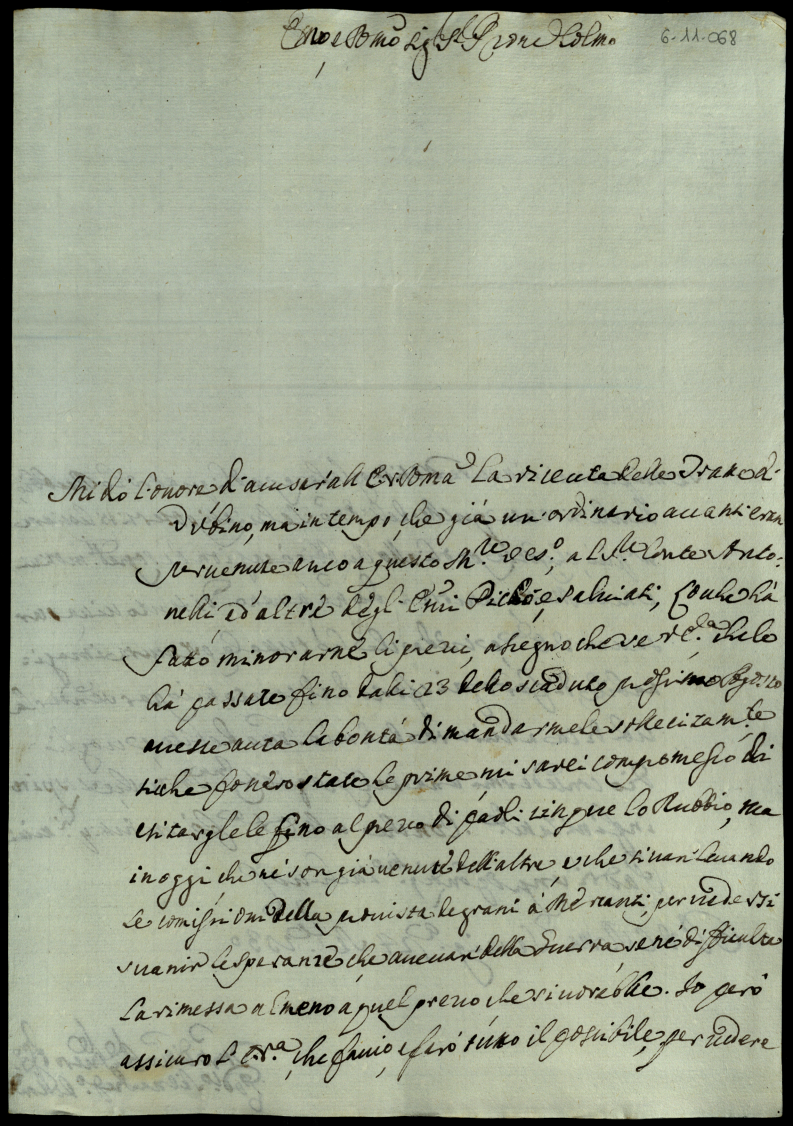 Emo e Rmo Sig.r Sig.r Prone Colmo
6-11-068
Mi dò l'onore d'accusar all' E.V. Rma la riceuta delle Tratte d'
Urbino, ma in tempo, che già un ordinario avanti eran
pervenute anco a questo M.re de S.o, al S.r Conte Anto-
nelli ed altri degli Emi Pichi, e Salviati, che hà
fatto minorarne li prezzi, a segno che se V. Ema. che le
hà passate fino dalli 23 dello scaduto prossimo Agosto
avesse auta la bontà di mandarmele sollecitam.te
siche fossero state le prime mi sarei compromesso di
esitargliele fino al prezzo di paoli cinque lo Rubbio, ma
in oggi che ne son già venute dell'altre, e che si van levando
le comissioni della provista de grani à Mercanti, per vedersi
svanir le speranze, che avevan della Guerra, se ne difficulta
la rimessa almeno a quel prezzo che si vorebbe. Io però
assicuro l' E.V.a, che faccio, e farò tutto il possibile, per vedere